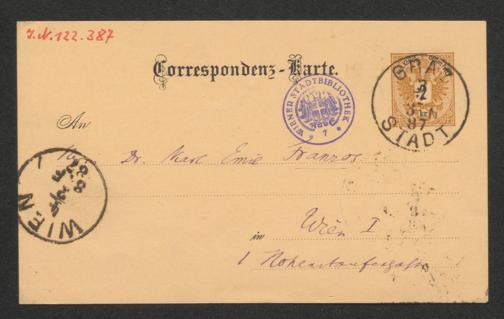 J.N. 122.387
Correspondenz-Karte.
GRAZ
STADT
87
WIENER STADTBIBLIOTHEK
An
Dr. Karl Emil Franzos
WIEN
in Wien I
1 Hohenstaufengasse